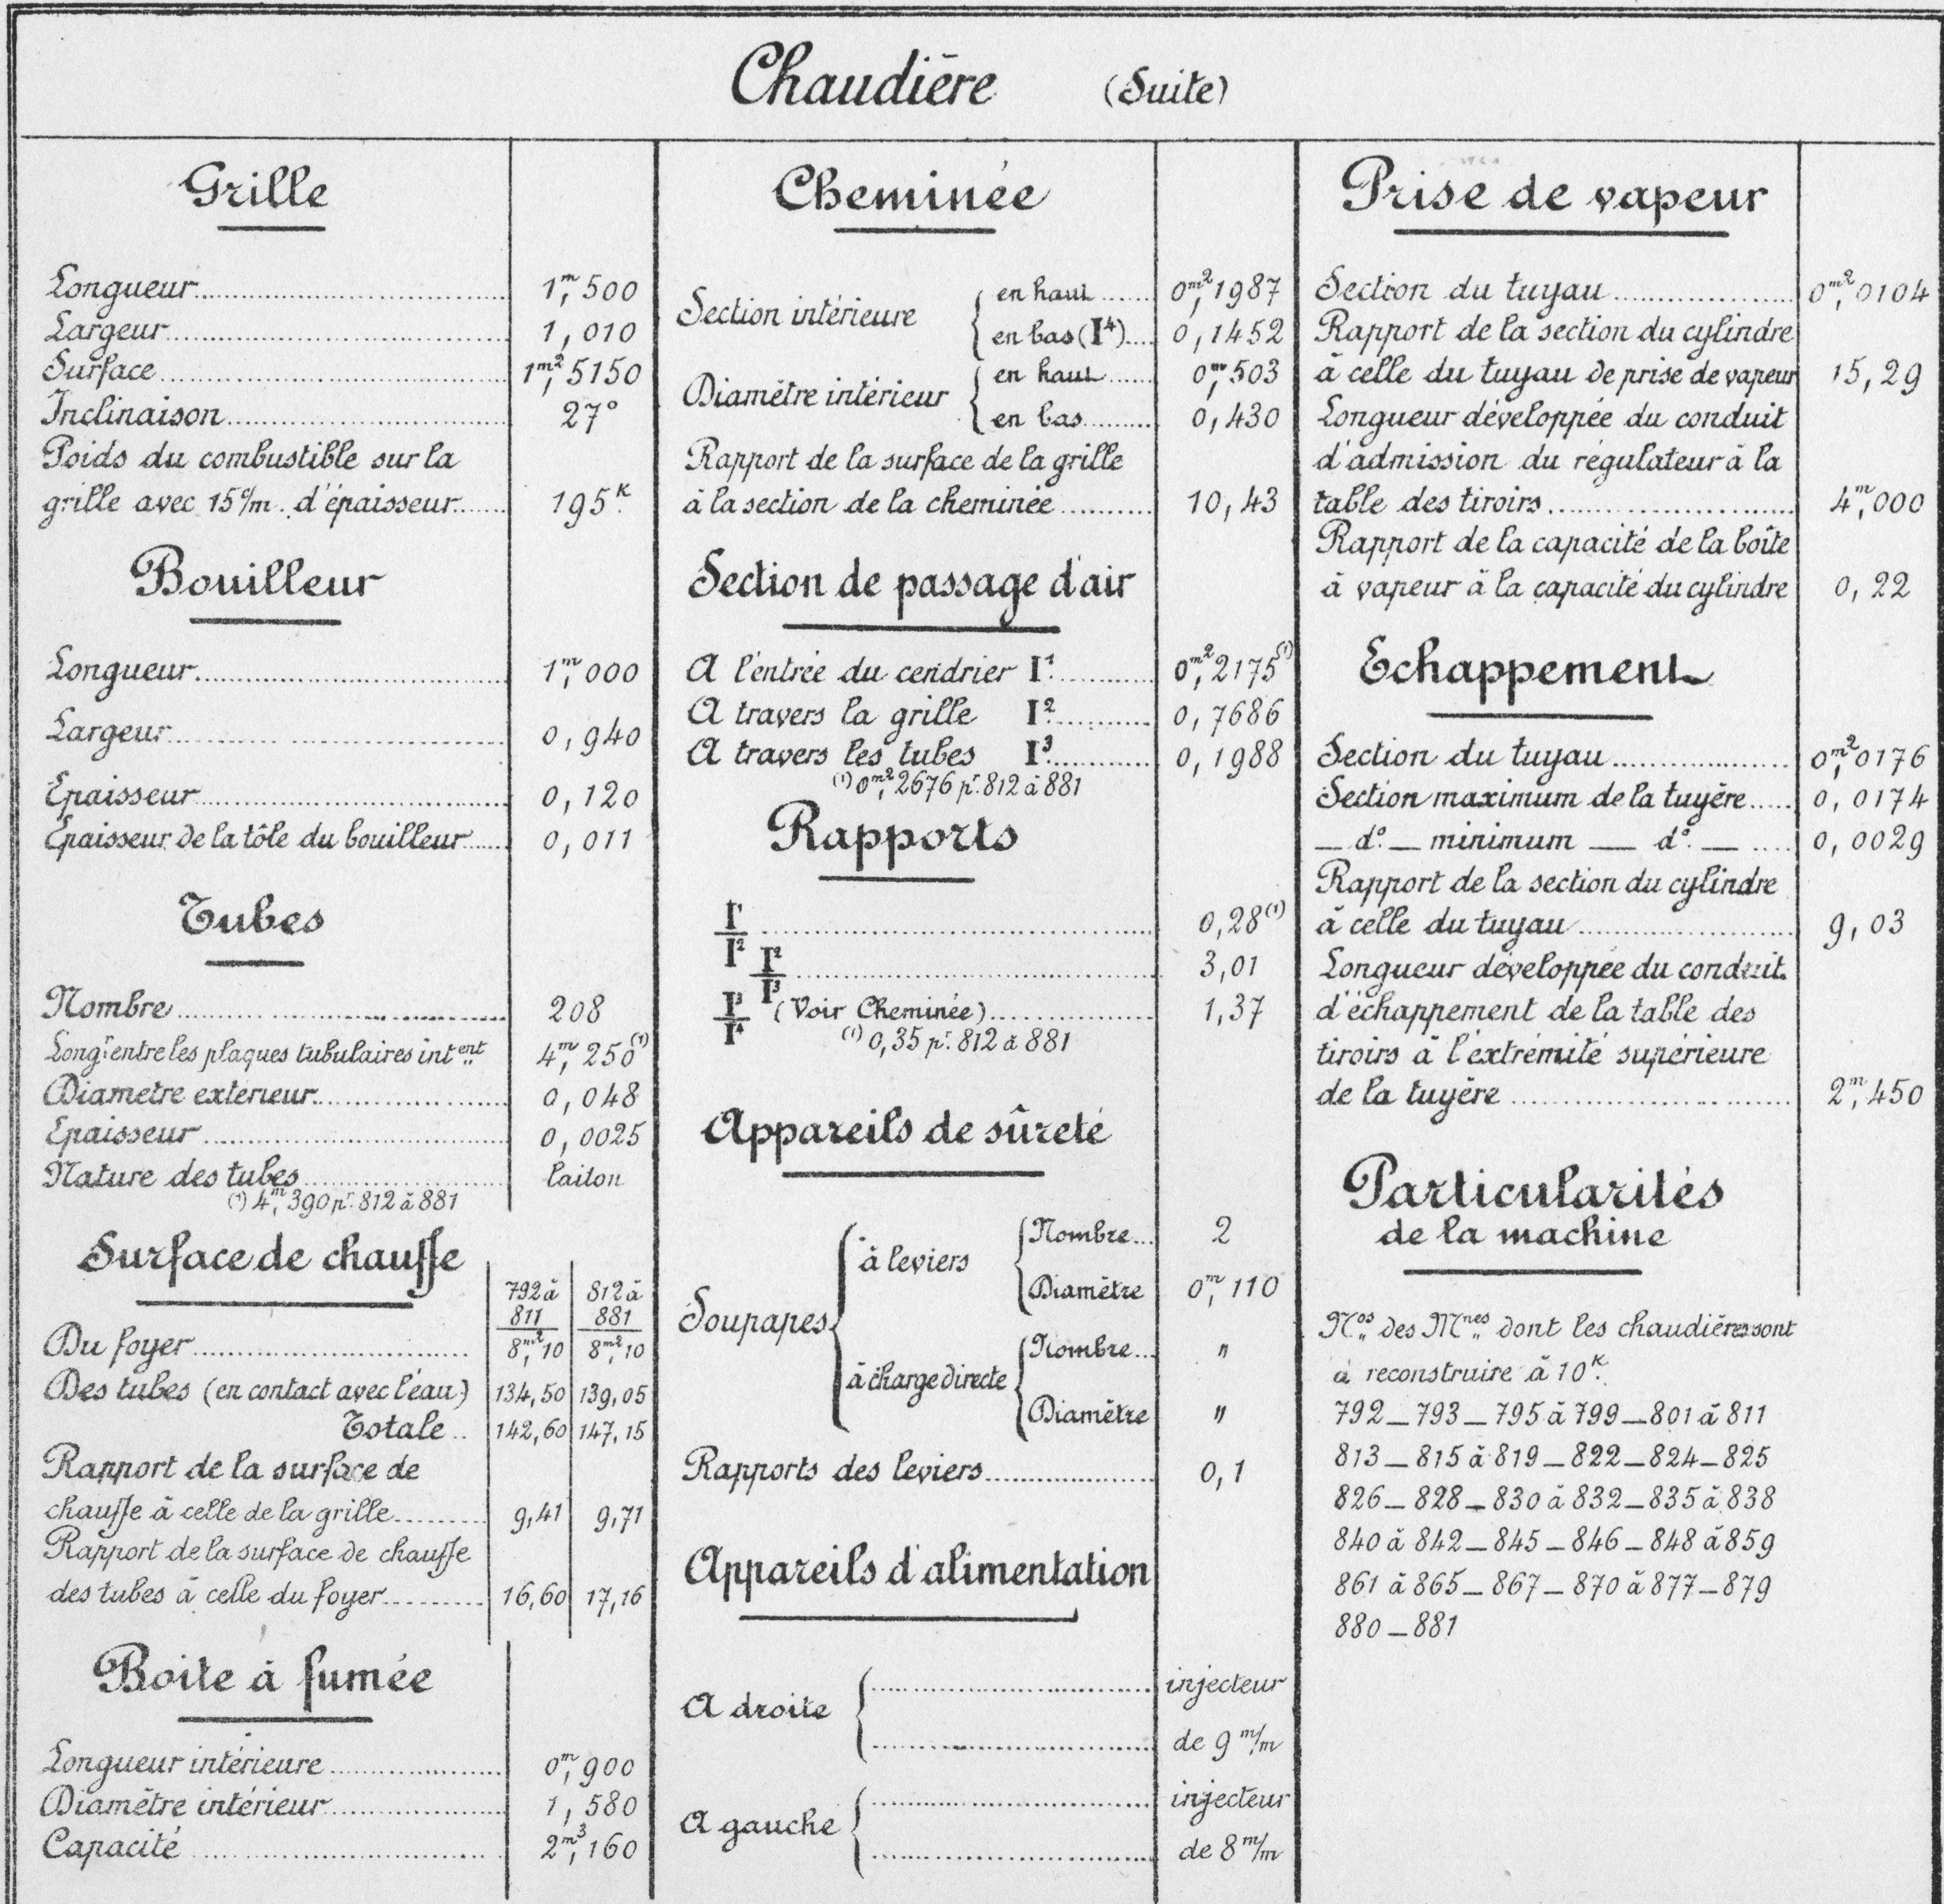 Chaudière (Suite)
Grille
Longueur 1,m500
Largeur 1,010
Surface 1,m²5150
Inclinaison 27°
Poids du combustible sur la
grille avec 15c/m d'épaisseur 195K.
Bouilleur
Longueur 1,m000
Largeur 0,940
Epaisseur 0,120
Epaisseur de la tôle du bouilleur 0,011
Tubes
Nombre 208
Longr entre les plaques tubulaires intent 4,m250(1)
Diamètre extérieur 0,048
Epaisseur 0,0025
Nature des tubes laiton
(1) 4,m390 pr. 812 à 881
Surface de chauffe
792 à 812 à
811 881
Du foyer 8,m²10 8,m²10
Des tubes (en contact avec l'eau) 134,50 139,05
Totale 142,60 147,15
Rapport de la surface de
chauffe à celle de la grille 9,41 9,71
Rapport de la surface de chauffe
des tubes à celle du foyer 16,60 17,16
Boite à fumée
Longueur intérieure 0,m900
Diamètre intérieur 1,580
Capacité 2,m³160
Cheminée
Section intérieure en haut 0,m²1987
en bas (I⁴) 0,1452
Diamètre intérieur en haut 0,m503
en bas 0,430
Rapport de la surface de la grille
à la section de la cheminée 10,43
Section de passage d'air
A l'entrée du cendrier I¹ 0,m²2175(1)
A travers la grille I² 0,7686
A travers les tubes I³ 0,1988
(1) 0,m²2676 pr. 812 à 881
Rapports
I¹/I² 0,28(1)
I²/I³ 3,01
I³/I⁴ (Voir Cheminée) 1,37
(1) 0,35 pr. 812 à 881
Appareils de sûreté
Soupapes à leviers Nombre 2
Diamètre 0,m110
à charge directe Nombre "
Diamètre "
Rapports des leviers 0,1
Appareils d'alimentation
A droite injecteur
de 9 m/m
A gauche injecteur
de 8 m/m
Prise de vapeur
Section du tuyau 0,m²0104
Rapport de la section du cylindre
à celle du tuyau de prise de vapeur 15,29
Longueur développée du conduit
d'admission du régulateur à la
table des tiroirs 4,m000
Rapport de la capacité de la boîte
à vapeur à la capacité du cylindre 0,22
Echappement
Section du tuyau 0,m²0176
Section maximum de la tuyère 0,0174
— do. — minimum — do. — 0,0029
Rapport de la section du cylindre
à celle du tuyau 9,03
Longueur développée du conduit
d'échappement de la table des
tiroirs à l'extrémité supérieure
de la tuyère 2,m450
Particularités
de la machine
Nos des Mnes dont les chaudières sont
à reconstruire à 10K.
792 — 793 — 795 à 799 — 801 à 811
813 — 815 à 819 — 822 — 824 — 825
826 — 828 — 830 à 832 — 835 à 838
840 à 842 — 845 — 846 — 848 à 859
861 à 865 — 867 — 870 à 877 — 879
880 — 881